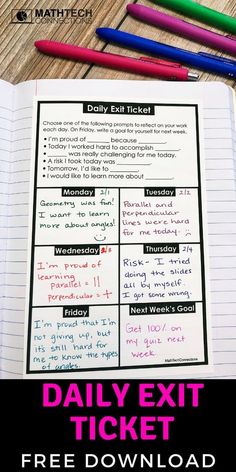 MATHTECH
CONNECTIONS
Daily Exit Ticket
Choose one of the following prompts to reflect on your work
each day. On Friday, write a goal for yourself next week.
• I'm proud of ______ because ______.
• Today I worked hard to accomplish ______.
• ______ was really challenging for me today.
• A risk I took today was ______.
• Tomorrow, I'd like to ______.
• I would like to learn more about ______.
Monday 2/1
Geometry was fun!
I want to learn
more about angles!
Tuesday 2/2
Parallel and
perpendicular
lines were hard
for me today.
Wednesday 2/3
I'm proud of
learning
parallel = ||
perpendicular = +
Thursday 2/4
Risk- I tried
doing the slides
all by myself.
I got some wrong.
Friday
I'm proud that I'm
not giving up, but
it's still hard for
me to know the types
of angles.
Next Week's Goal
Get 100% on
my quiz next
week.
MathTechConnections
DAILY EXIT
TICKET
FREE DOWNLOAD